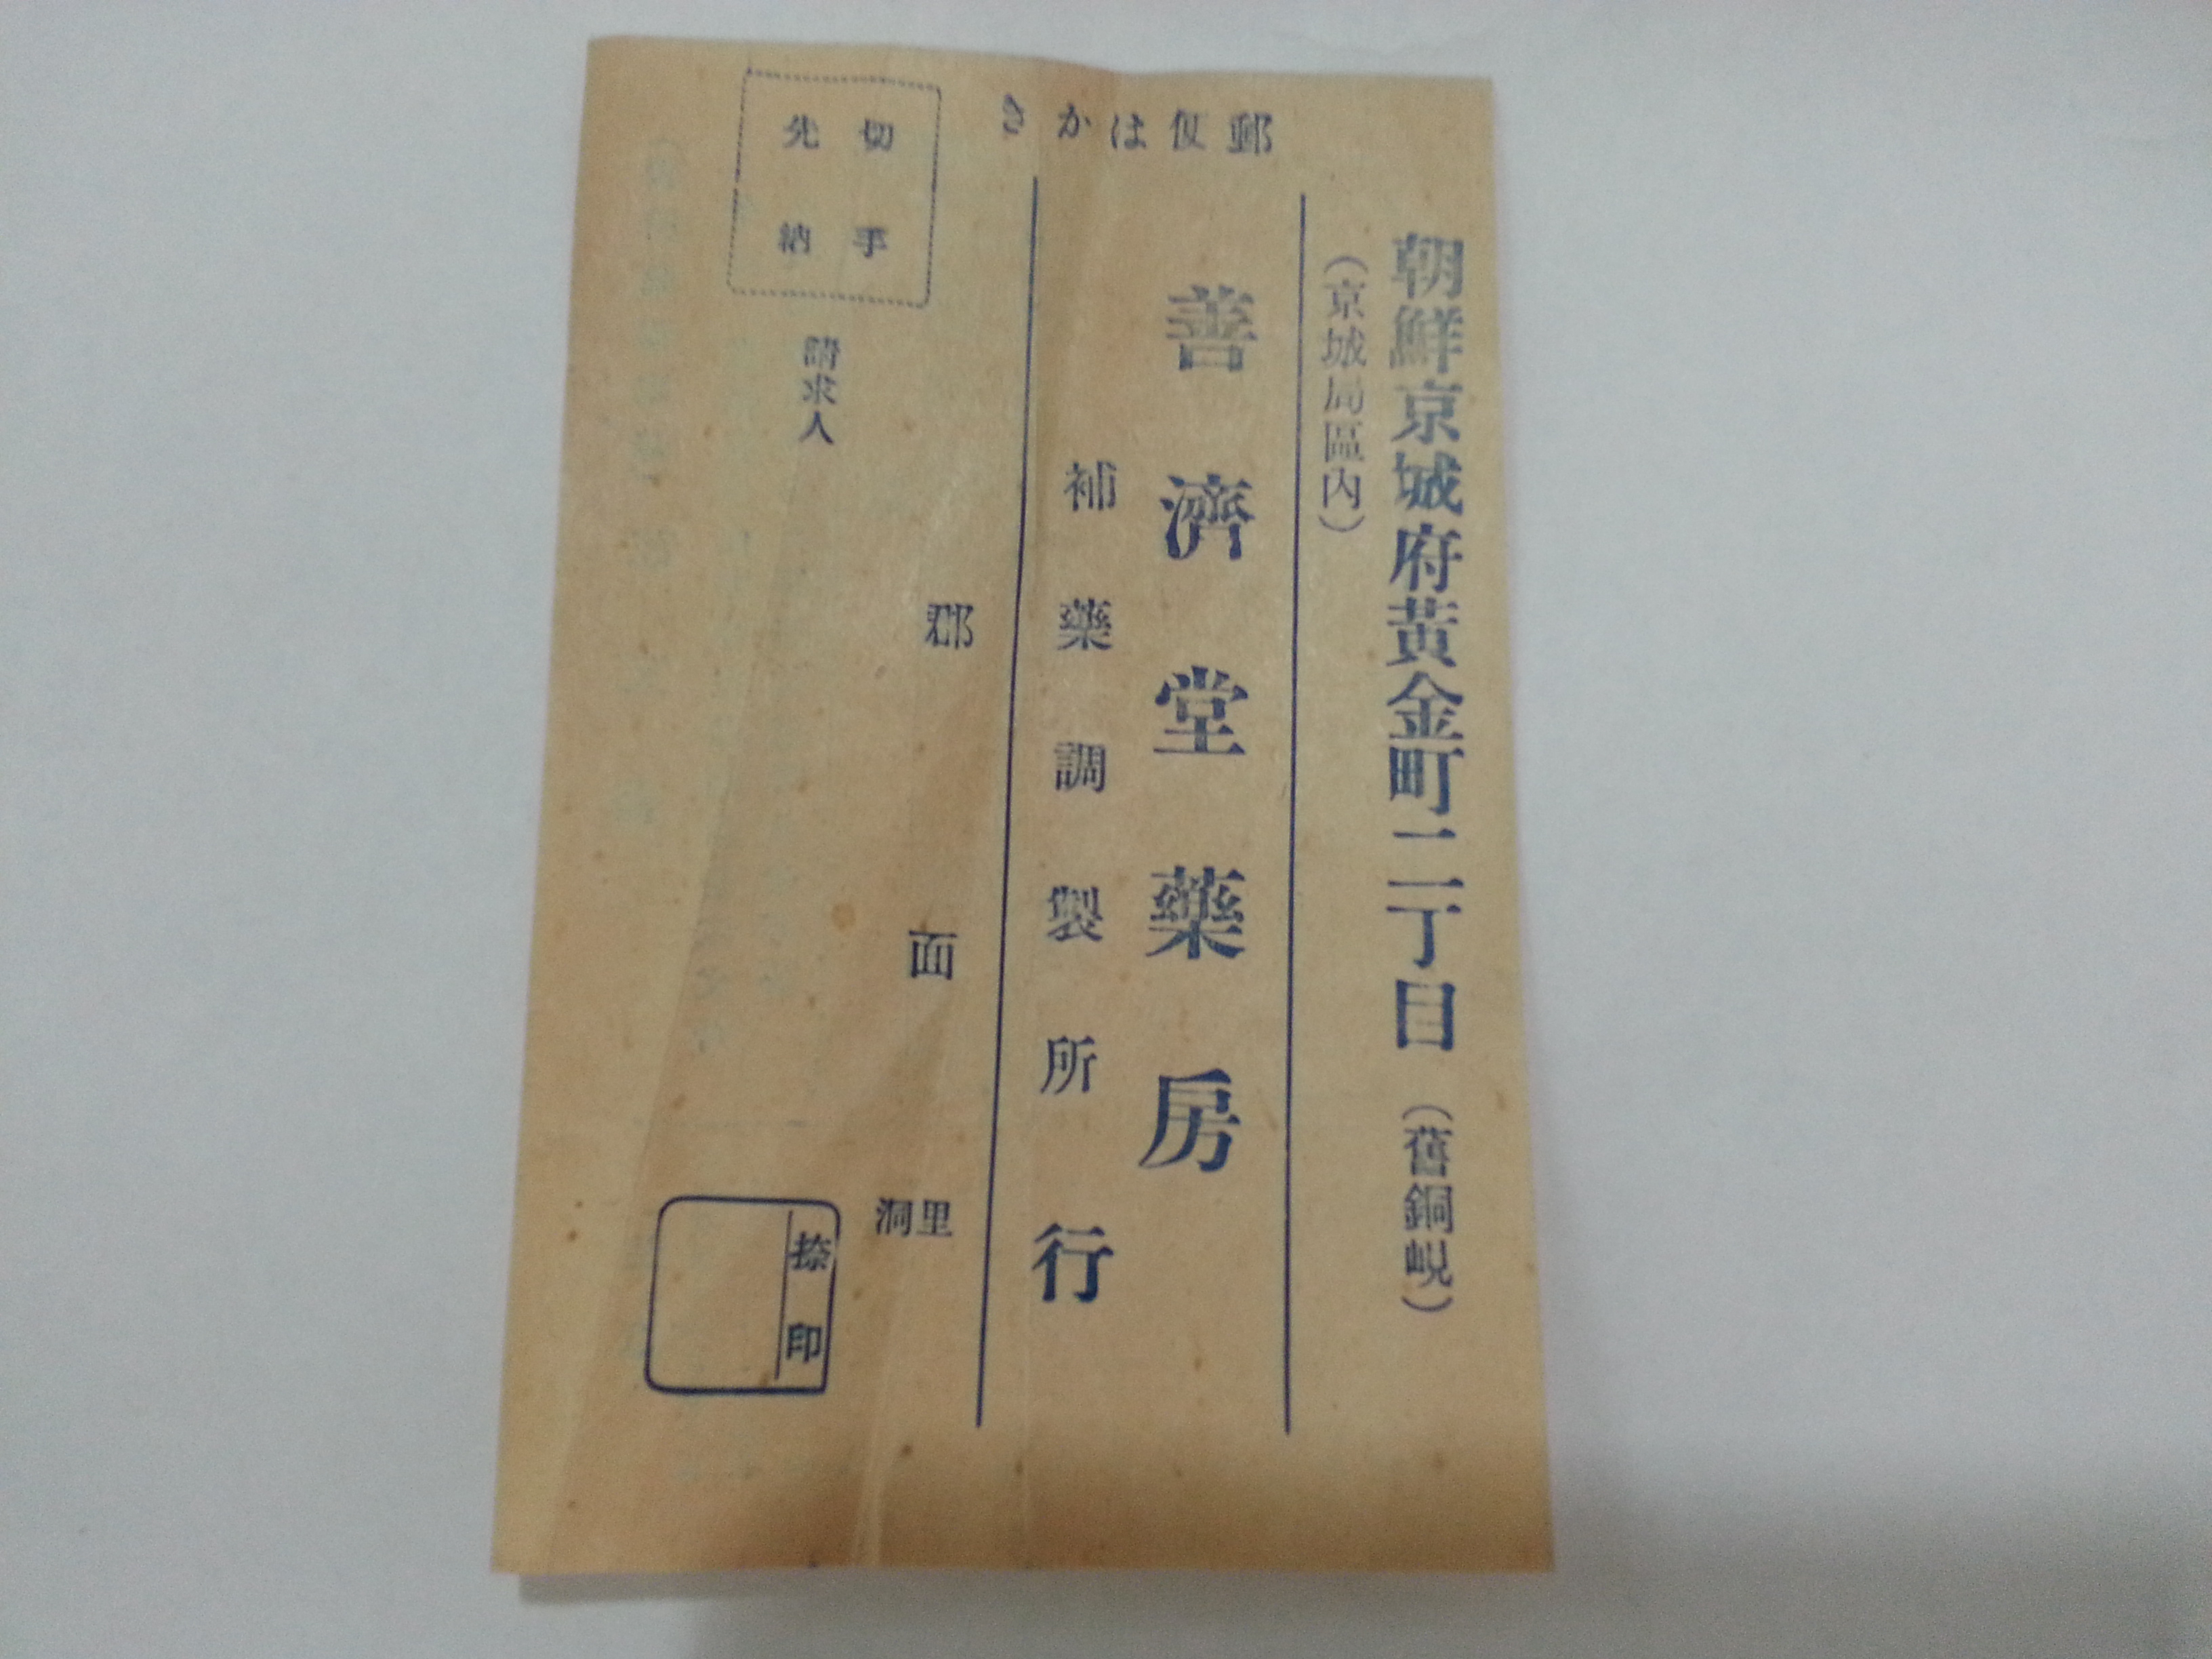 郵便はかき
朝鮮京城府黃金町二丁目（舊銅峴）
（京城局區內）
善濟堂藥房
補藥調製所行
切手
先納
郡 面 里洞
請求人
捺印